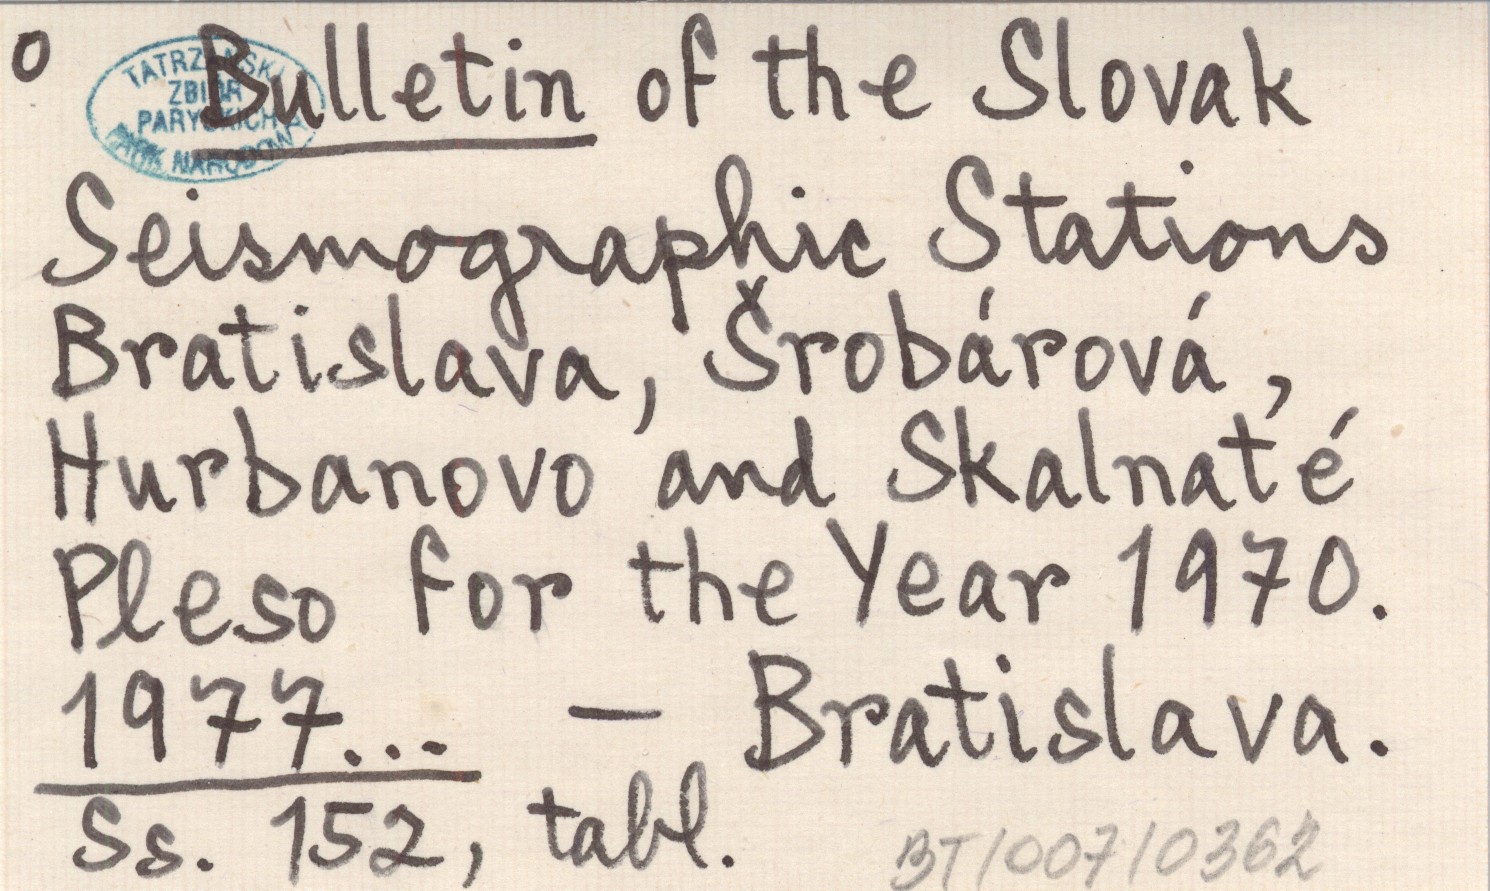 O
TATRZAŃSKI
ZBIÓR
PARYSKICH
PARK NARODOWY
Bulletin of the Slovak
Seismographic Stations
Bratislava, Šrobárová,
Hurbanovo and Skalnaté
Pleso for the Year 1970.
1977... — Bratislava.
Ss. 152, tabl.
BT/007/0362